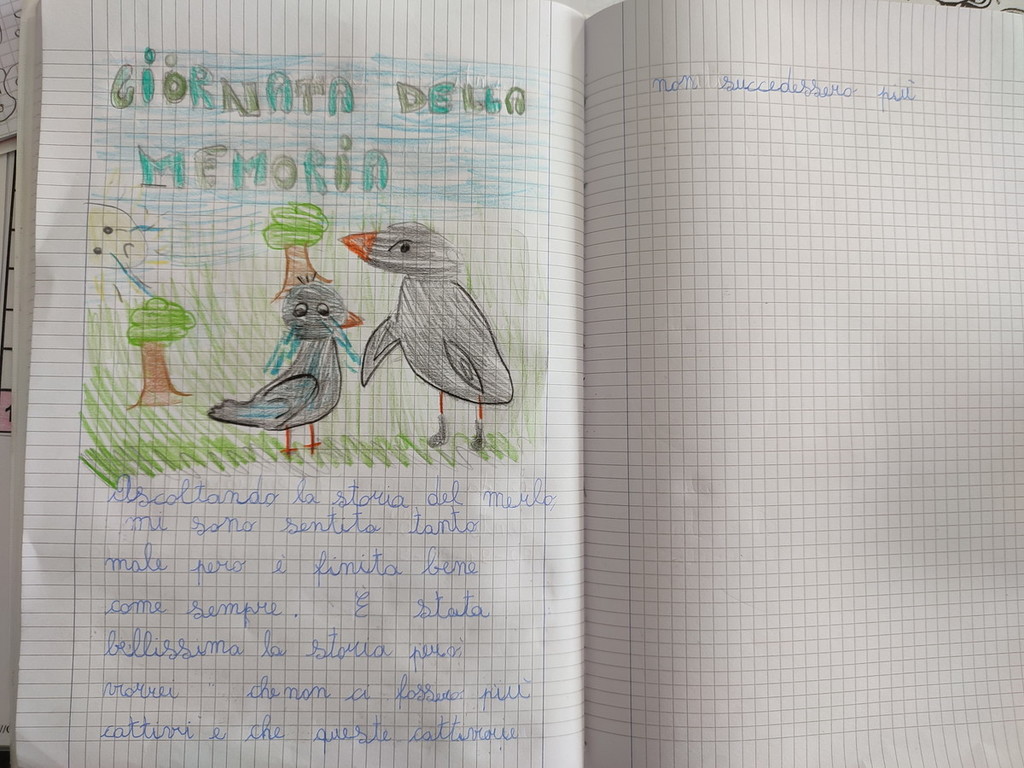 GIORNATA DELLA
MEMORIA
Ascoltando la storia del merlo,
mi sono sentita tanto
male pero è finita bene
come sempre. E stata
bellissima la storia però
vorrei che non ci fossero più
cattivi e che queste cattiverie
non succedessero più